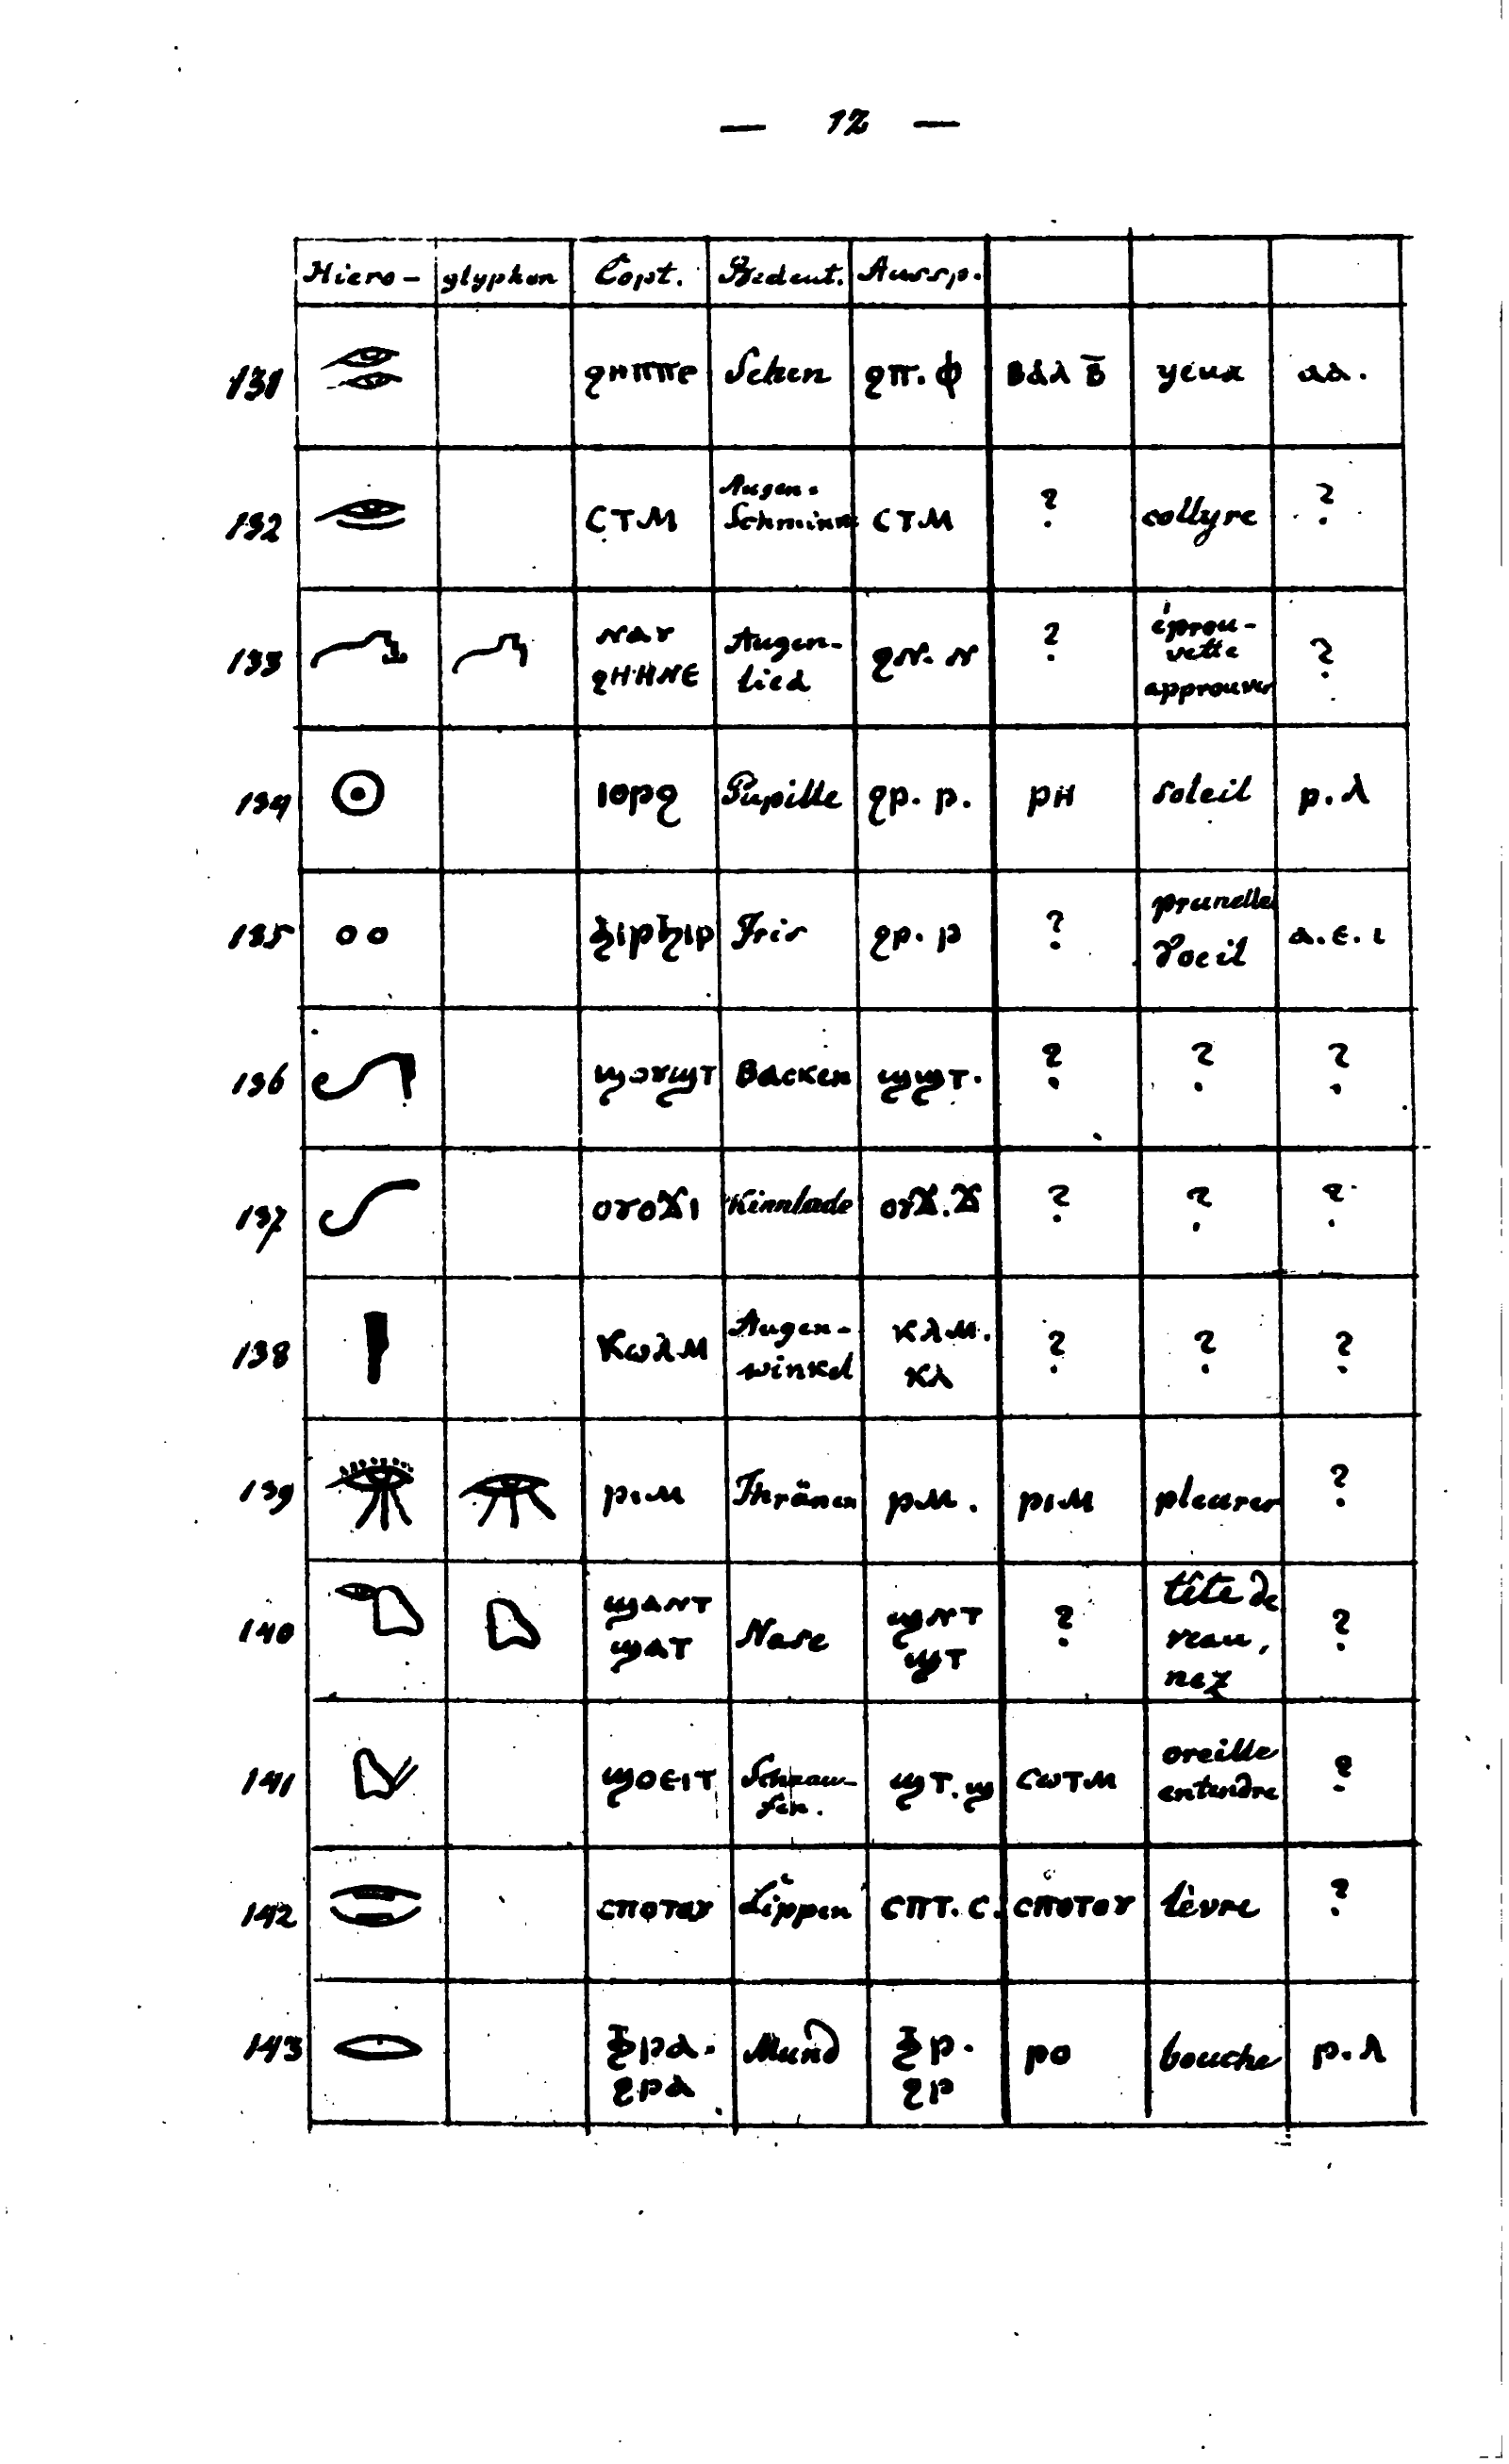 — 12 —
Hiero- glyphen Copt. Bedeut. Aussp.
131 ϩⲏⲡⲡⲉ Sehen ϩⲡ. ⲫ ⲃⲁⲗ ⲃ̅ yeux ⲁⲁ.
132 ⲥⲧⲙ Augen- Schminke ⲥⲧⲙ ? collyre ?
133 ⲛⲁⲩ ϩⲏⲏⲛⲉ Augen- lied ϩⲛ. ⲛ ? éprou- vette approuver ?
134 ⲓⲟⲣϩ Pupille ϩⲣ. ⲣ. ⲣⲏ soleil ⲣ. ⲗ
135 ϧⲓⲣϧⲓⲣ Iris ϩⲣ. ⲣ ? prunelle l'oeil ⲁ. ⲉ. ⲓ
136 ϣⲟⲩϣⲧ Backen ϣϣⲧ. ? ? ?
137 ⲟⲩⲟϫⲓ Kinnlade ⲟⲩϫ. ϫ ? ? ?
138 ⲕⲱⲗⲙ Augen- winkel ⲕⲗⲙ. ⲕⲗ ? ? ?
139 ⲣⲓⲙ Thränen ⲣⲙ. ⲣⲓⲙ pleurer ?
140 ϣⲁⲛⲧ ϣⲁⲧ Nase ϣⲛⲧ ϣⲧ ? tête de veau, nez ?
141 ϣⲟⲉⲓⲧ ϣⲧ. ϣ ⲥⲱⲧⲙ oreille entendre ?
142 ⲥⲡⲟⲧⲟⲩ Lippen ⲥⲡⲧ. ⲥ. ⲥⲡⲟⲧⲟⲩ lèvre ?
143 ϧⲣⲁ. ϩⲣⲁ Mund ϧⲣ. ϩⲣ ⲣⲟ bouche ⲣ. ⲗ